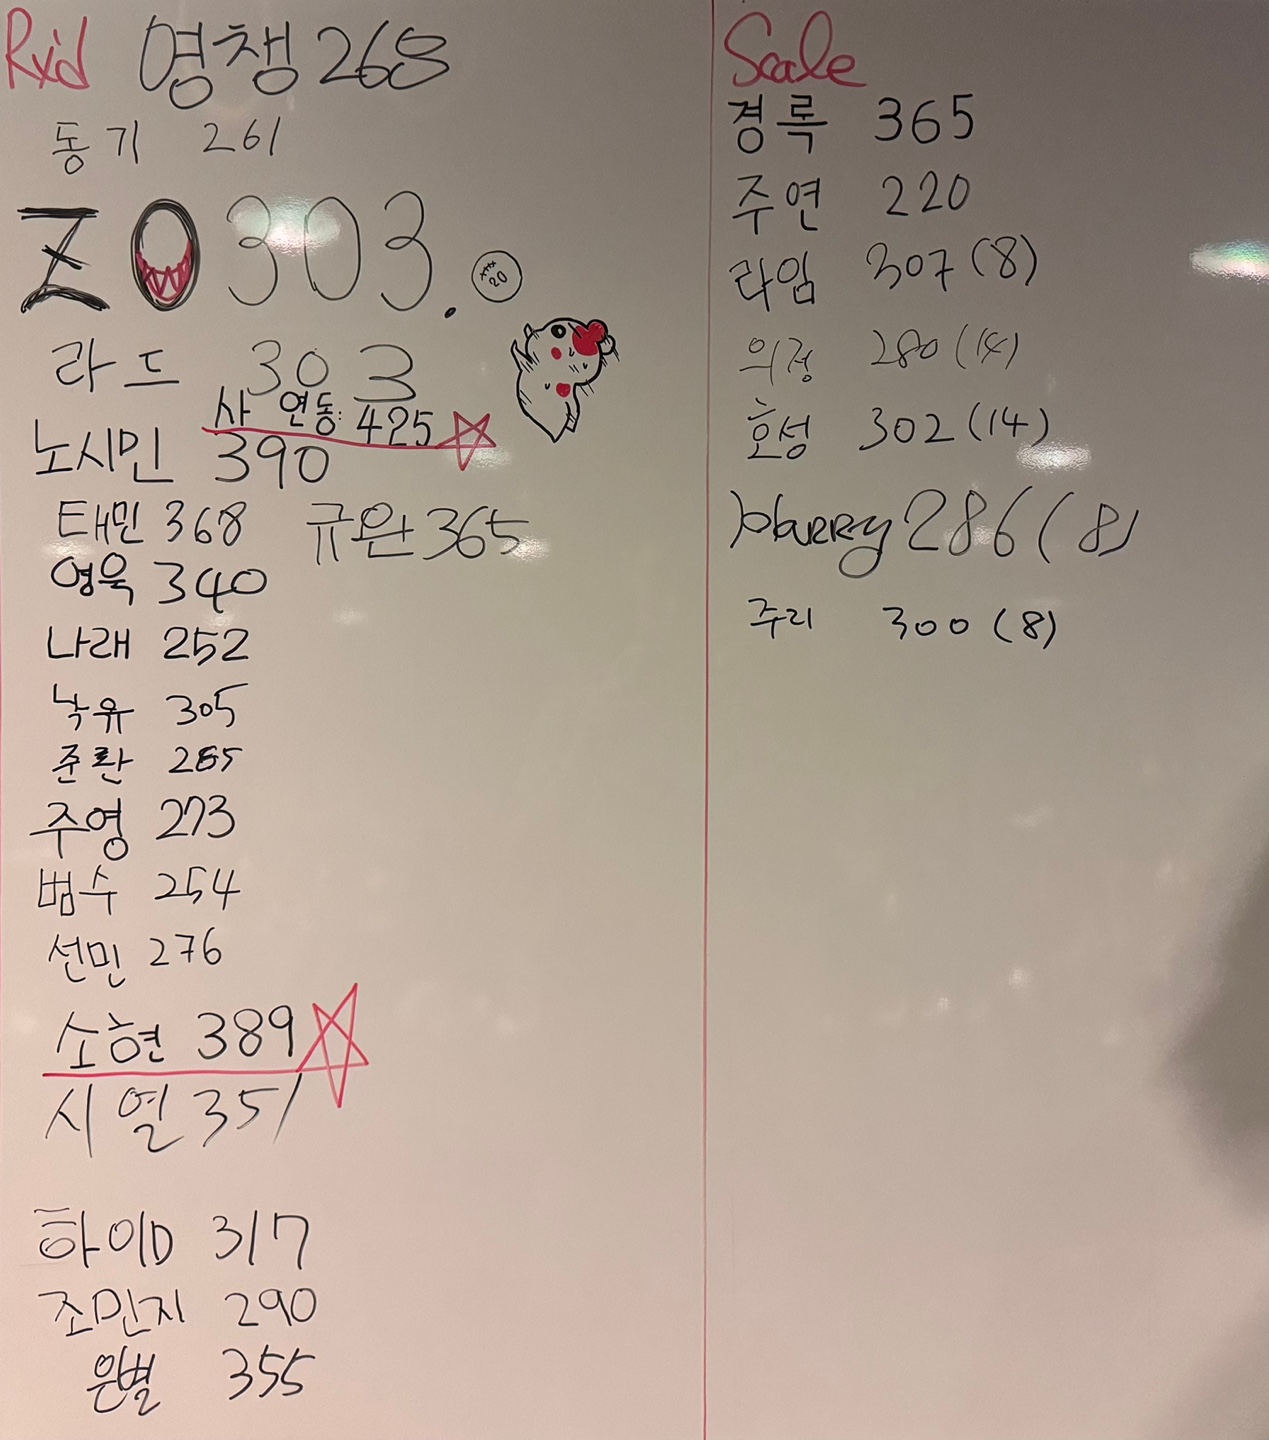 Rx'd
영챙 268
동기 261
ZO 303.
20
라드 303
사 연동: 425
노시민 390
태민 368
규완 365
영욱 340
나래 252
낙유 305
준란 285
주영 273
범수 254
선민 276
소현 389
시열 351
하이D 317
조민지 290
은별 355
Scale
경록 365
주연 220
라임 307 (8)
의정 280 (14)
호성 302 (14)
Harry 286 (8)
주리 300 (8)